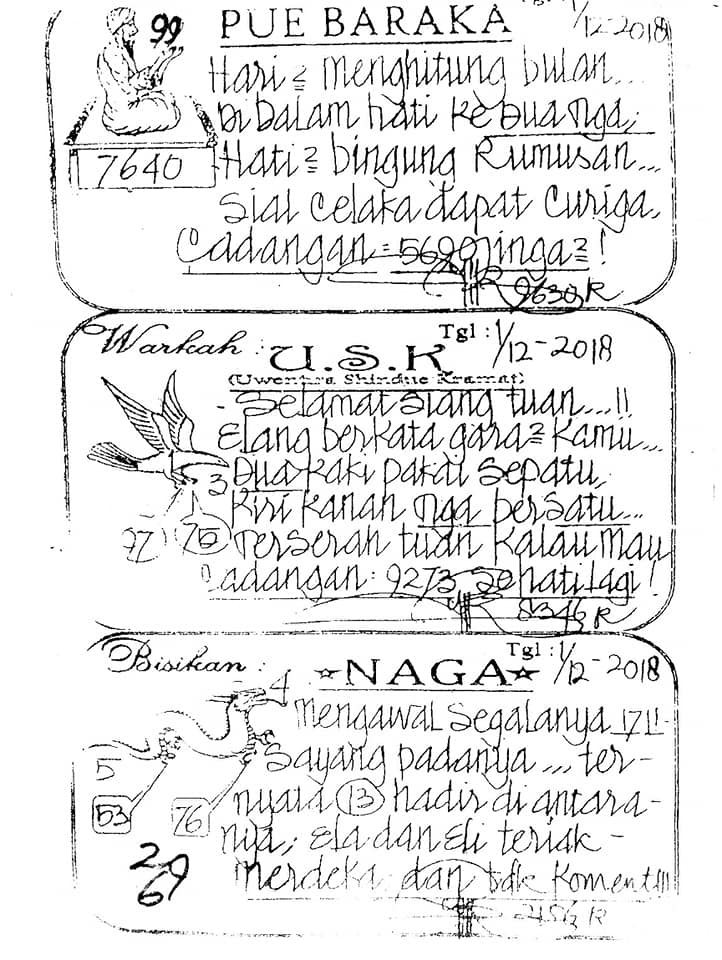 99
PUE BARAKA
Tgl : 1/12-2018
Hari ² menghitung bulan...
Di Dalam hati ke Dua nga,
7640
Hati ² bingung Rumusan...
Sial Celaka dapat Curiga.
Cadangan = 5690 jinga ² !
9630 R
Warkah :
U.S.K
Tgl : 1/12-2018
(Uwentira Shindue Kramat)
- Selamat siang tuan...!!
Elang berkata gara ² Kamu...
3
Dua kaki pakai Sepatu,
Kiri Kanan nga berSatu...
97
76
Terserah tuan Kalau mau
Cadangan : 9273 Sehati lagi !
8346 R
Bisikan :
NAGA
Tgl : 1/12-2018
4
Mengawal Segalanya 17!!
5
Sayang padanya ... ter-
53
76
nyata 13 hadir di antara-
nya, Ela dan Eli teriak -
29
6
Merdeka dan tdk Koment!!!